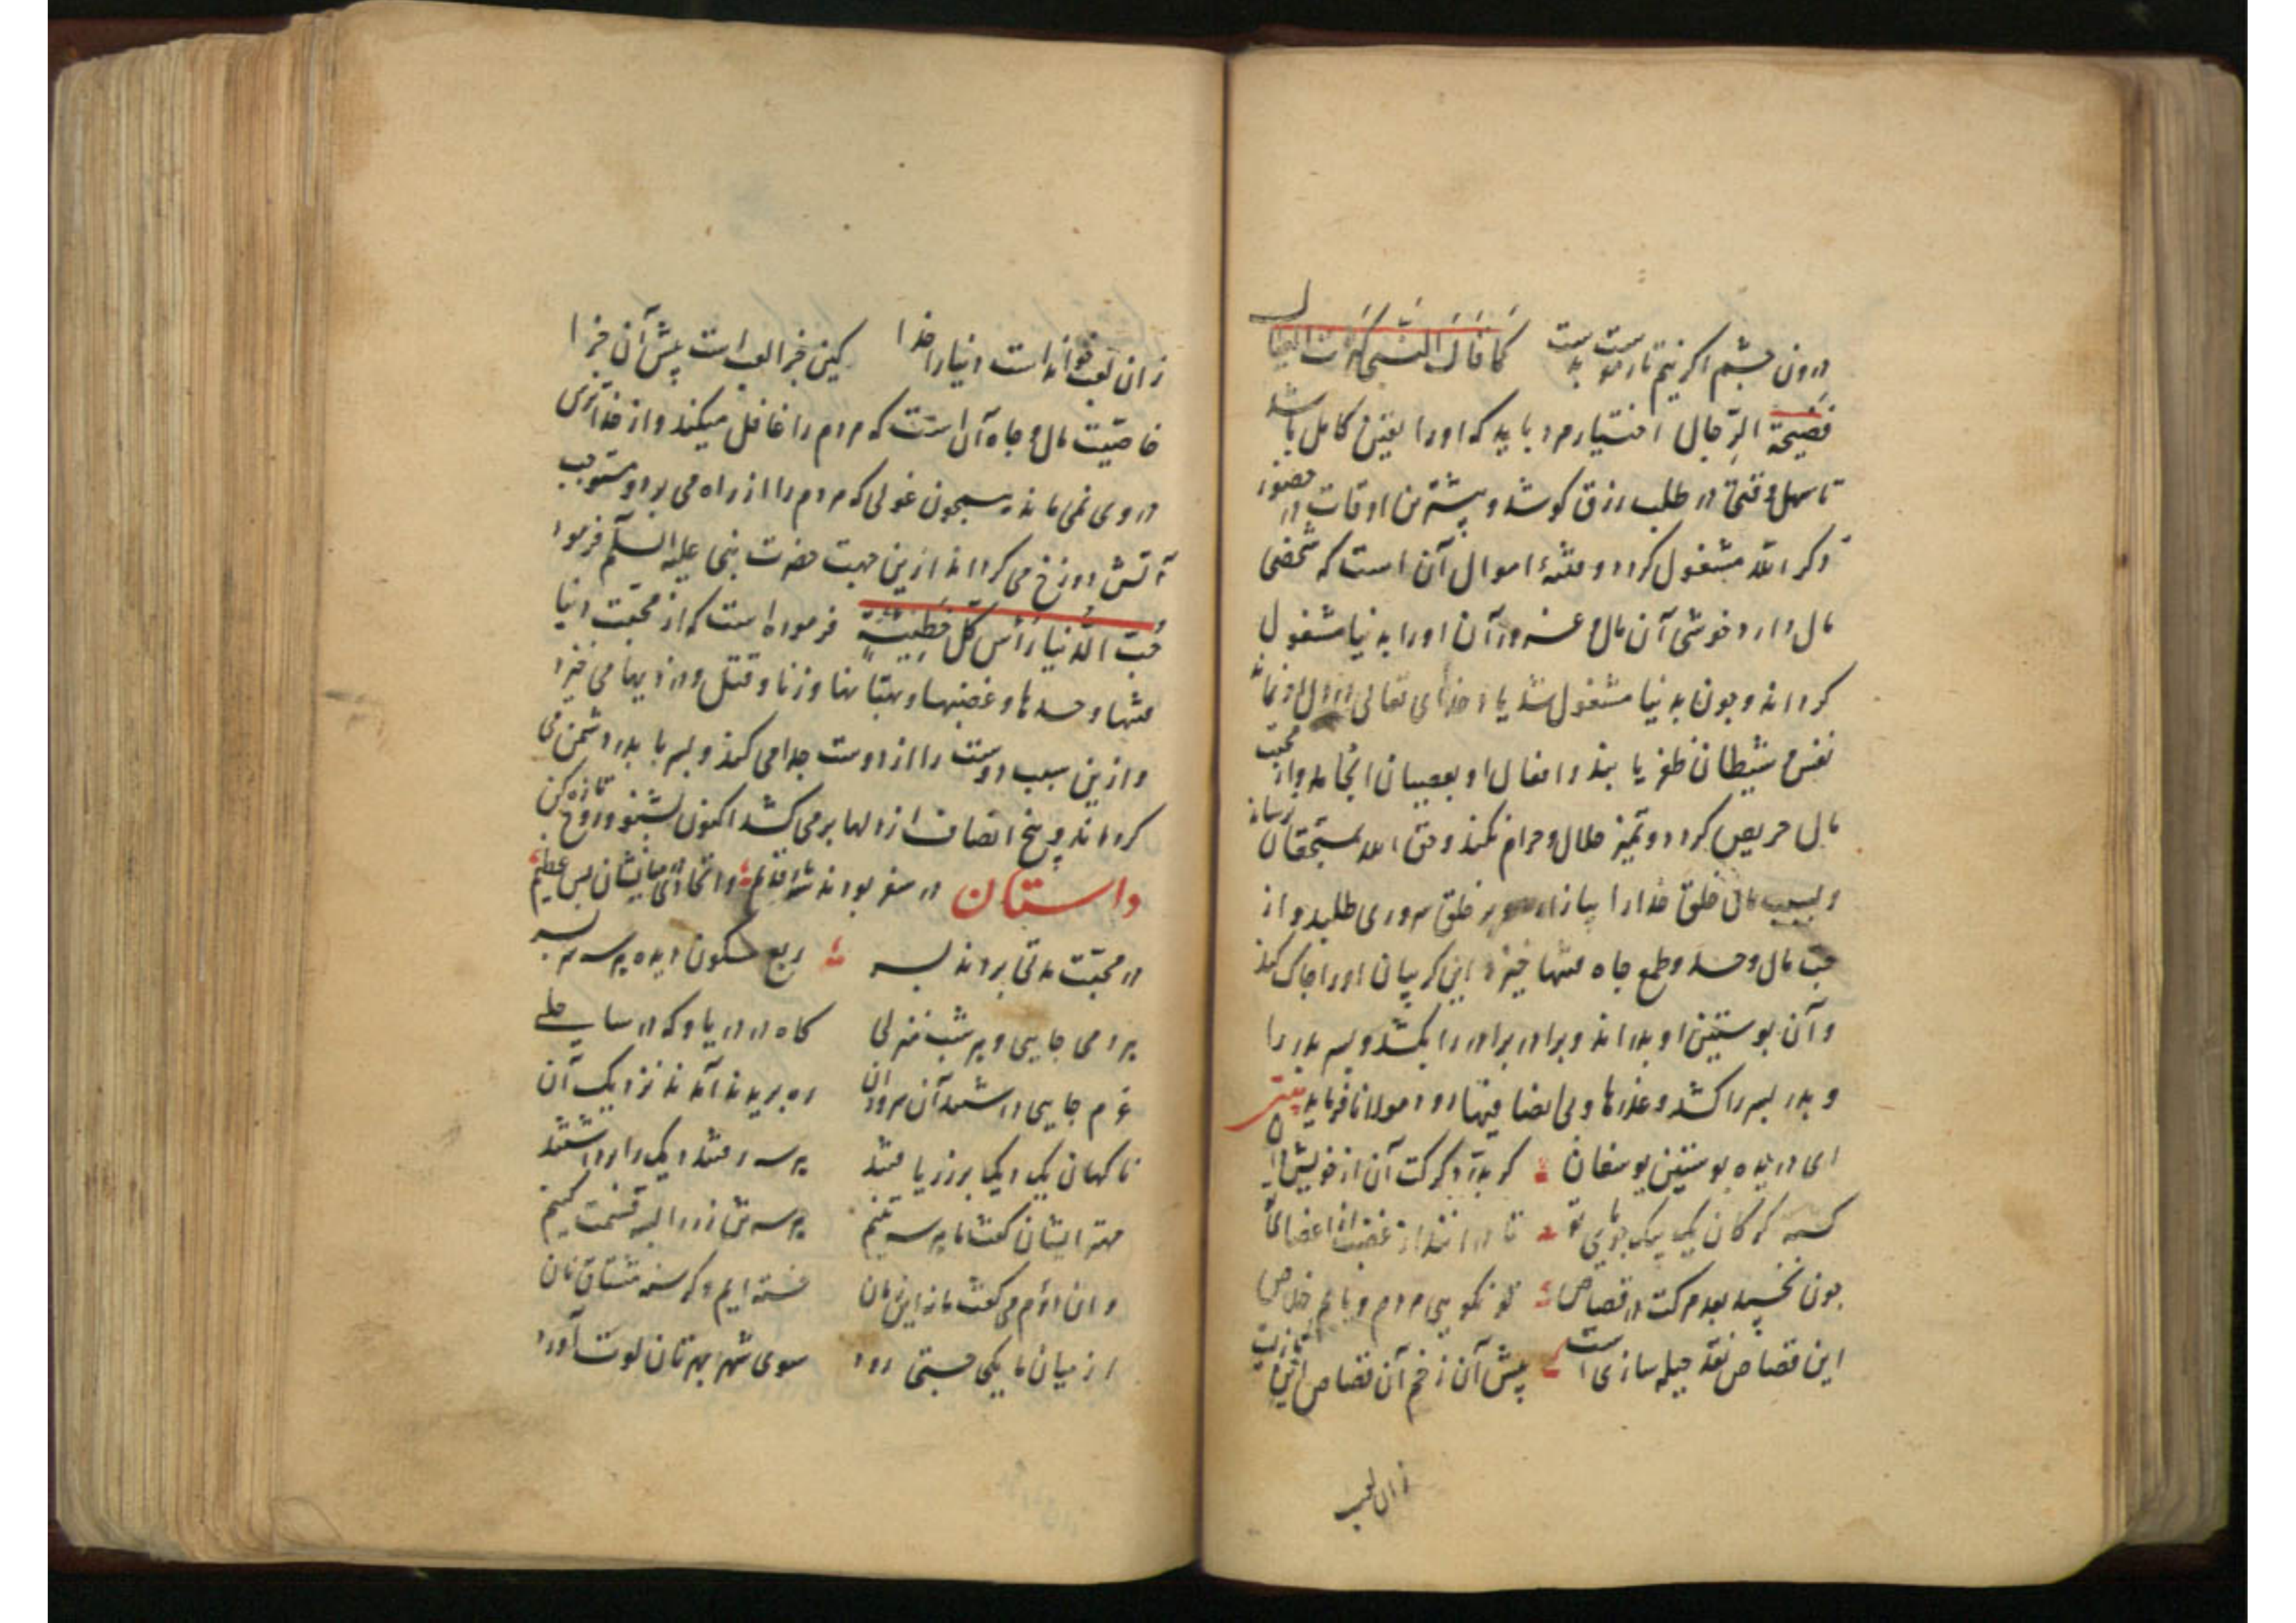 درون چشم اگر نیم تار موست بدست کما قال النبی کثرت العیال
فضیحة الرّجال اختیار مرد باید که اورا یقین کامل باشد
تا سهل وقتی در طلب رزق کوشد و بیشترین اوقات در حضور
ذکر الله مشغول کردد و فتنهٔ اموال آن است که شخصی
مال دارد خوشی آن مال و غرور آن اورا بدنیا مشغول
کرداند و چون بدنیا مشغول شد یاد خدای تعالی در دل او نماند
نفس و شیطان ظفر یابند و افعال او بعصیان انجامد و از محبّت
مال حریص کردد و تمیز حلال و حرام نکند و حق الله بمستحقان نرساند
و بسبب مال خلق خدارا بیازارد و بر خلق سروری طلبد و از
حبّ مال و حسد و طمع جاه فتنها خیزد این کریبان اورا چاک کند
و آن پوستین او بدراند و برادر برادر را بکشد و پسر پدر را
و پدر پسر را کشد و غدرها و بی انصافیها رود مولانا فرماید بیت
ای دریده پوستین یوسفان کر بدرد کرکت آن از خویش دان
کشته کرکان یک بیک خوهای تو تا درانند از غضب اعضای تو
خون نخسپد بعد مرکت در قصاص تو نکویی مردم و یابم خلاص
این قصاص نقد حیله سازی است پیش آن زخم آن قصاص این بازیست
زان لعب
زان لعب خوانده است دنیارا خدا کین جزا لعب است پیش آن جزا
خاصیّت مال و جاه آن است که مردم را غافل میکند و از خدا ترسی
در وی نمی ماند همچون غولی که مردم را از راه می برد و مستوجب
آتش دوزخ می کرداند ازین جهت حضرت نبی علیه السلم فرمود
حبّ الدّنیا رأس کلّ خطیئة فرموده است که از محبّت دنیا
فتنها و حسدها و غضبها و بهتانها و زنا و قتل و دزدیها می خیزد
و ازین سبب دوست را از دوست جدا می کند و پسر با پدر دشمن می
کرداند و بیخ انصاف از دلها بر می کشد اکنون بشنو و روح تازه کن
داستان در سفر بودند شه از قدیم و اتحادی میانشان بس عظیم
در محبّت مدتی بردند بسر ربع مسکون دیده هر سه سر بسر
هر دمی جایی و هر شب منزلی کاه در دریا و که در ساحلی
عزم جایی داشتند آن سروران ره بریدند آمدند نزدیک آن
ناکهان یک دیک پر زر یافتند هر سه رفتند دیک را برداشتند
مهتر ایشان کفت ما هر سه تنیم هر سه مان زر را بسه قسمت کنیم
وان دوم می کفت ما را این زمان خسته ایم و کرسنه مشتاق نان
از میان ما یکی چستی رود سوی شهر بهرتان لوت آورد